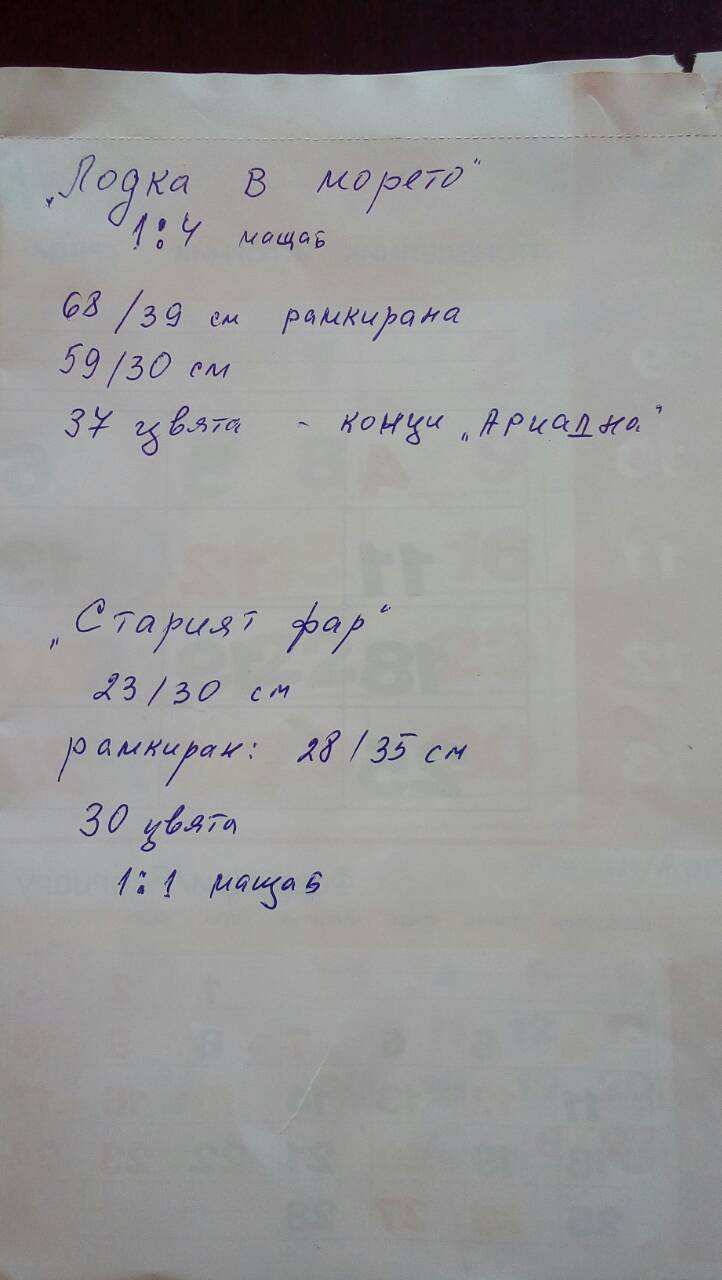 „Лодка в морето"
1:4 мащаб
68/39 см рамкирана
59/30 см
37 цвята - конци „Ариадна"
„Старият фар"
23/30 см
рамкиран: 28/35 см
30 цвята
1:1 мащаб